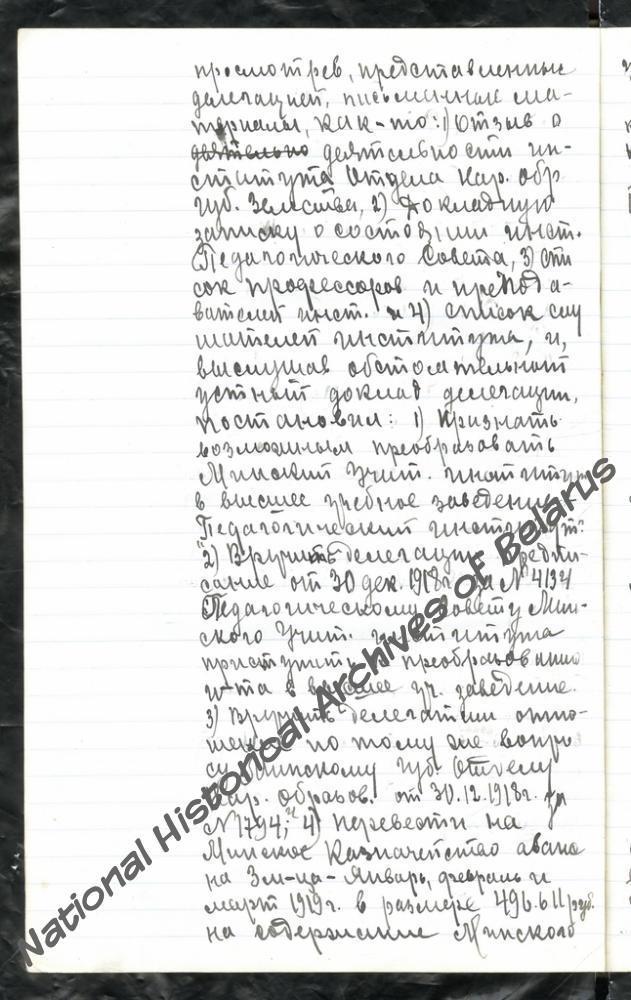 просмотрев, представленные
делегацией, письменные ма-
териалы, как-то: 1) Отзыв о
деятельно деятельности ин-
ститута Отдела Нар. обр.
Губ. Земства, 2) Докладную
записку о состоянии инст.
Педагогического Совета, 3) спи
сок профессоров и препода-
вателей инст. и 4) список слу
шателей института, и,
выслушав обстоятельный
устный доклад делегации,
постановил: 1) Признать
возможным преобразовать
Минский Учит. институт
в высшее учебное заведение
"Педагогический институт".
2) Вручить делегации предпи-
сание от 30 дек. 1918 г. за №4134
Педагогическому Совету Мин-
ского Учит. института
приступить к преобразованию
и-та в высшее уч. заведение.
3) Вручить делегации отно-
шение по тому же вопро
су Минскому Губ. Отделу
Нар. Образов. от 30.12.1918 г. за
№1794, и 4) перевести на
Минское Казначейство аванс
на 3 м-ца - Январь, февраль и
март 1919 г. в размере 496.611 руб.
на содержание Минского
National Historical Archives of Belarus